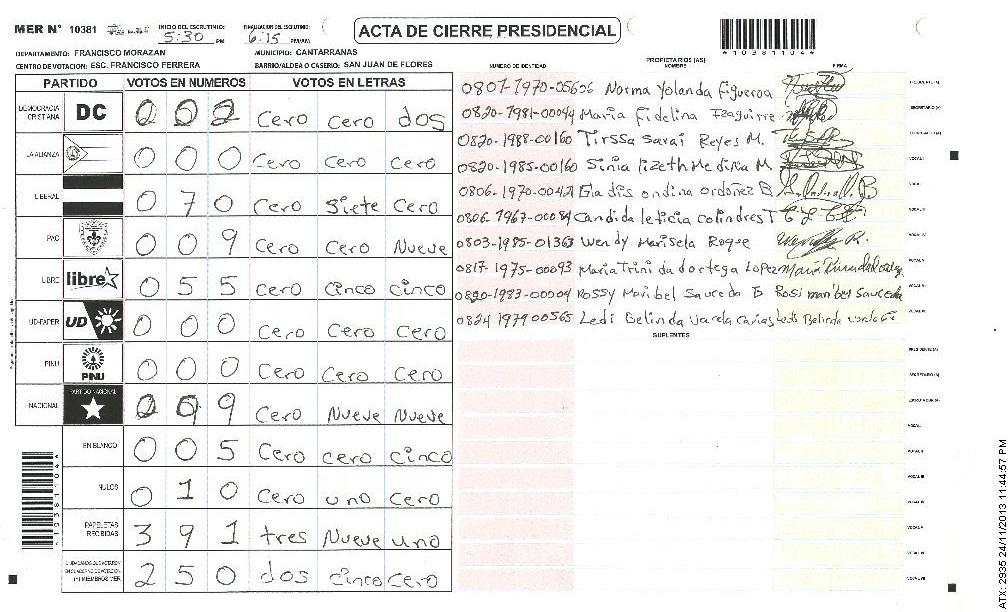 MER Nº 10381 INICIO DEL ESCRUTINIO: 5:30 PM FINALIZACION DEL ESCRUTINIO: 6:15 PM/AM ACTA DE CIERRE PRESIDENCIAL
DEPARTAMENTO: FRANCISCO MORAZAN MUNICIPIO: CANTARRANAS *10381104*
CENTRO DE VOTACION: ESC. FRANCISCO FERRERA BARRIO/ALDEA O CASERIO: SAN JUAN DE FLORES
PARTIDO VOTOS EN NUMEROS VOTOS EN LETRAS
DEMOCRACIA CRISTIANA DC 0 0 2 Cero cero dos
LA ALIANZA 0 0 0 Cero Cero Cero
LIBERAL 0 7 0 Cero Siete Cero
PAC 0 0 9 Cero Cero Nueve
LIBRE libre 0 5 5 Cero Cinco cinco
UD-FAPER UD 0 0 0 Cero Cero Cero
PINU PINU 0 0 0 Cero Cero Cero
NACIONAL PARTIDO NACIONAL 0 9 Cero Nueve Nueve
EN BLANCO 0 0 5 Cero cero cinco
NULOS 0 1 0 Cero uno Cero
PAPELETAS RECIBIDAS 3 9 1 tres Nueve uno
CIUDADANOS QUE VOTARON EN CUADERNO DE VOTACION (+) MIEMBROS MER 2 5 0 dos cinco cero
*10381104*
PROPIETARIOS (AS)
NUMERO DE IDENTIDAD NOMBRE FIRMA
0801-1970-05626 Norma Yolanda Figueroa PRESIDENTE (A)
0820-1981-00044 Maria Fidelina Izaguirre SECRETARIO (A)
0820-1988-00160 Tirssa Sarai Reyes M. ESCRUTADOR (A)
0820-1985-00160 Sinia lizeth Medina M VOCAL I
0806-1970-00421 Gladis ondina ordoñez B VOCAL II
0806-1967-00084 Candida leticia colindres T VOCAL III
0803-1985-01363 Wendy Marisela Roque Wendy R. VOCAL IV
0817-1975-00093 Maria Trinidad ortega Lopez Maria Trinidad VOCAL V
0820-1983-00004 Rossy Maribel Sauceda B Rosi maribel Sauceda VOCAL VI
0824 1979 00565 Ledi Belinda Varela Carias Ledi Belinda VOCAL VII
SUPLENTES
PRESIDENTE (A)
SECRETARIO (A)
ESCRUTADOR (A)
VOCAL I
VOCAL II
VOCAL III
VOCAL IV
VOCAL V
VOCAL VI
VOCAL VII
ATX: 2935 24/11/2013 11:44:57 PM